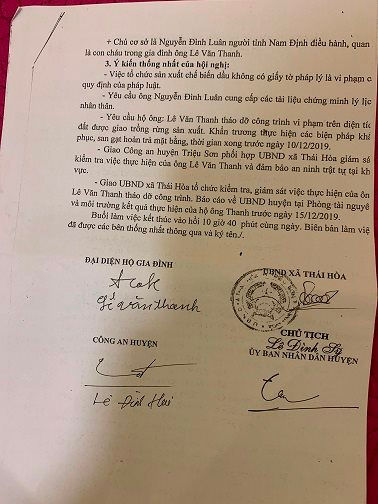 + Chủ cơ sở là Nguyễn Đình Luân người tỉnh Nam Định điều hành, quan
là con cháu trong gia đình ông Lê Văn Thanh.
3. Ý kiến thống nhất của hội nghị:
- Việc tổ chức sản xuất chế biến dầu không có giấy tờ pháp lý là vi phạm c
quy định của pháp luật.
- Yêu cầu ông Nguyễn Đình Luân cung cấp các tài liệu chứng minh lý lịc
nhân thân.
- Yêu cầu hộ ông: Lê Văn Thanh tháo dỡ công trình vi phạm trên diện tíc
đất được giao trồng rừng sản xuất. Khẩn trương thực hiện các biện pháp khắ
phục, san gạt hoàn trả mặt bằng, thời gian xong trước ngày 10/12/2019.
- Giao Công an huyện Triệu Sơn phối hợp UBND xã Thái Hòa giám sá
kiểm tra việc thực hiện của ông Lê Văn Thanh và đảm bảo an ninh trật tự tại kh
vực.
- Giao UBND xã Thái Hòa tổ chức kiểm tra, giám sát việc thực hiện của ôn
Lê Văn Thanh tháo dỡ công trình. Báo cáo về UBND huyện tại Phòng tài nguyê
và môi trường kết quả thực hiện của hộ ông Thanh trước ngày 15/12/2019.
Buổi làm việc kết thúc vào hồi 10 giờ 40 phút cùng ngày. Biên bản làm việ
đã được các bên thống nhất thông qua và ký tên./.
ĐẠI DIỆN HỘ GIA ĐÌNH
UBND XÃ THÁI HÒA
Lê Văn Thanh
CHỦ TỊCH
Lê Đình Sỹ
CÔNG AN HUYỆN
ỦY BAN NHÂN DÂN HUYỆN
Lê Đình